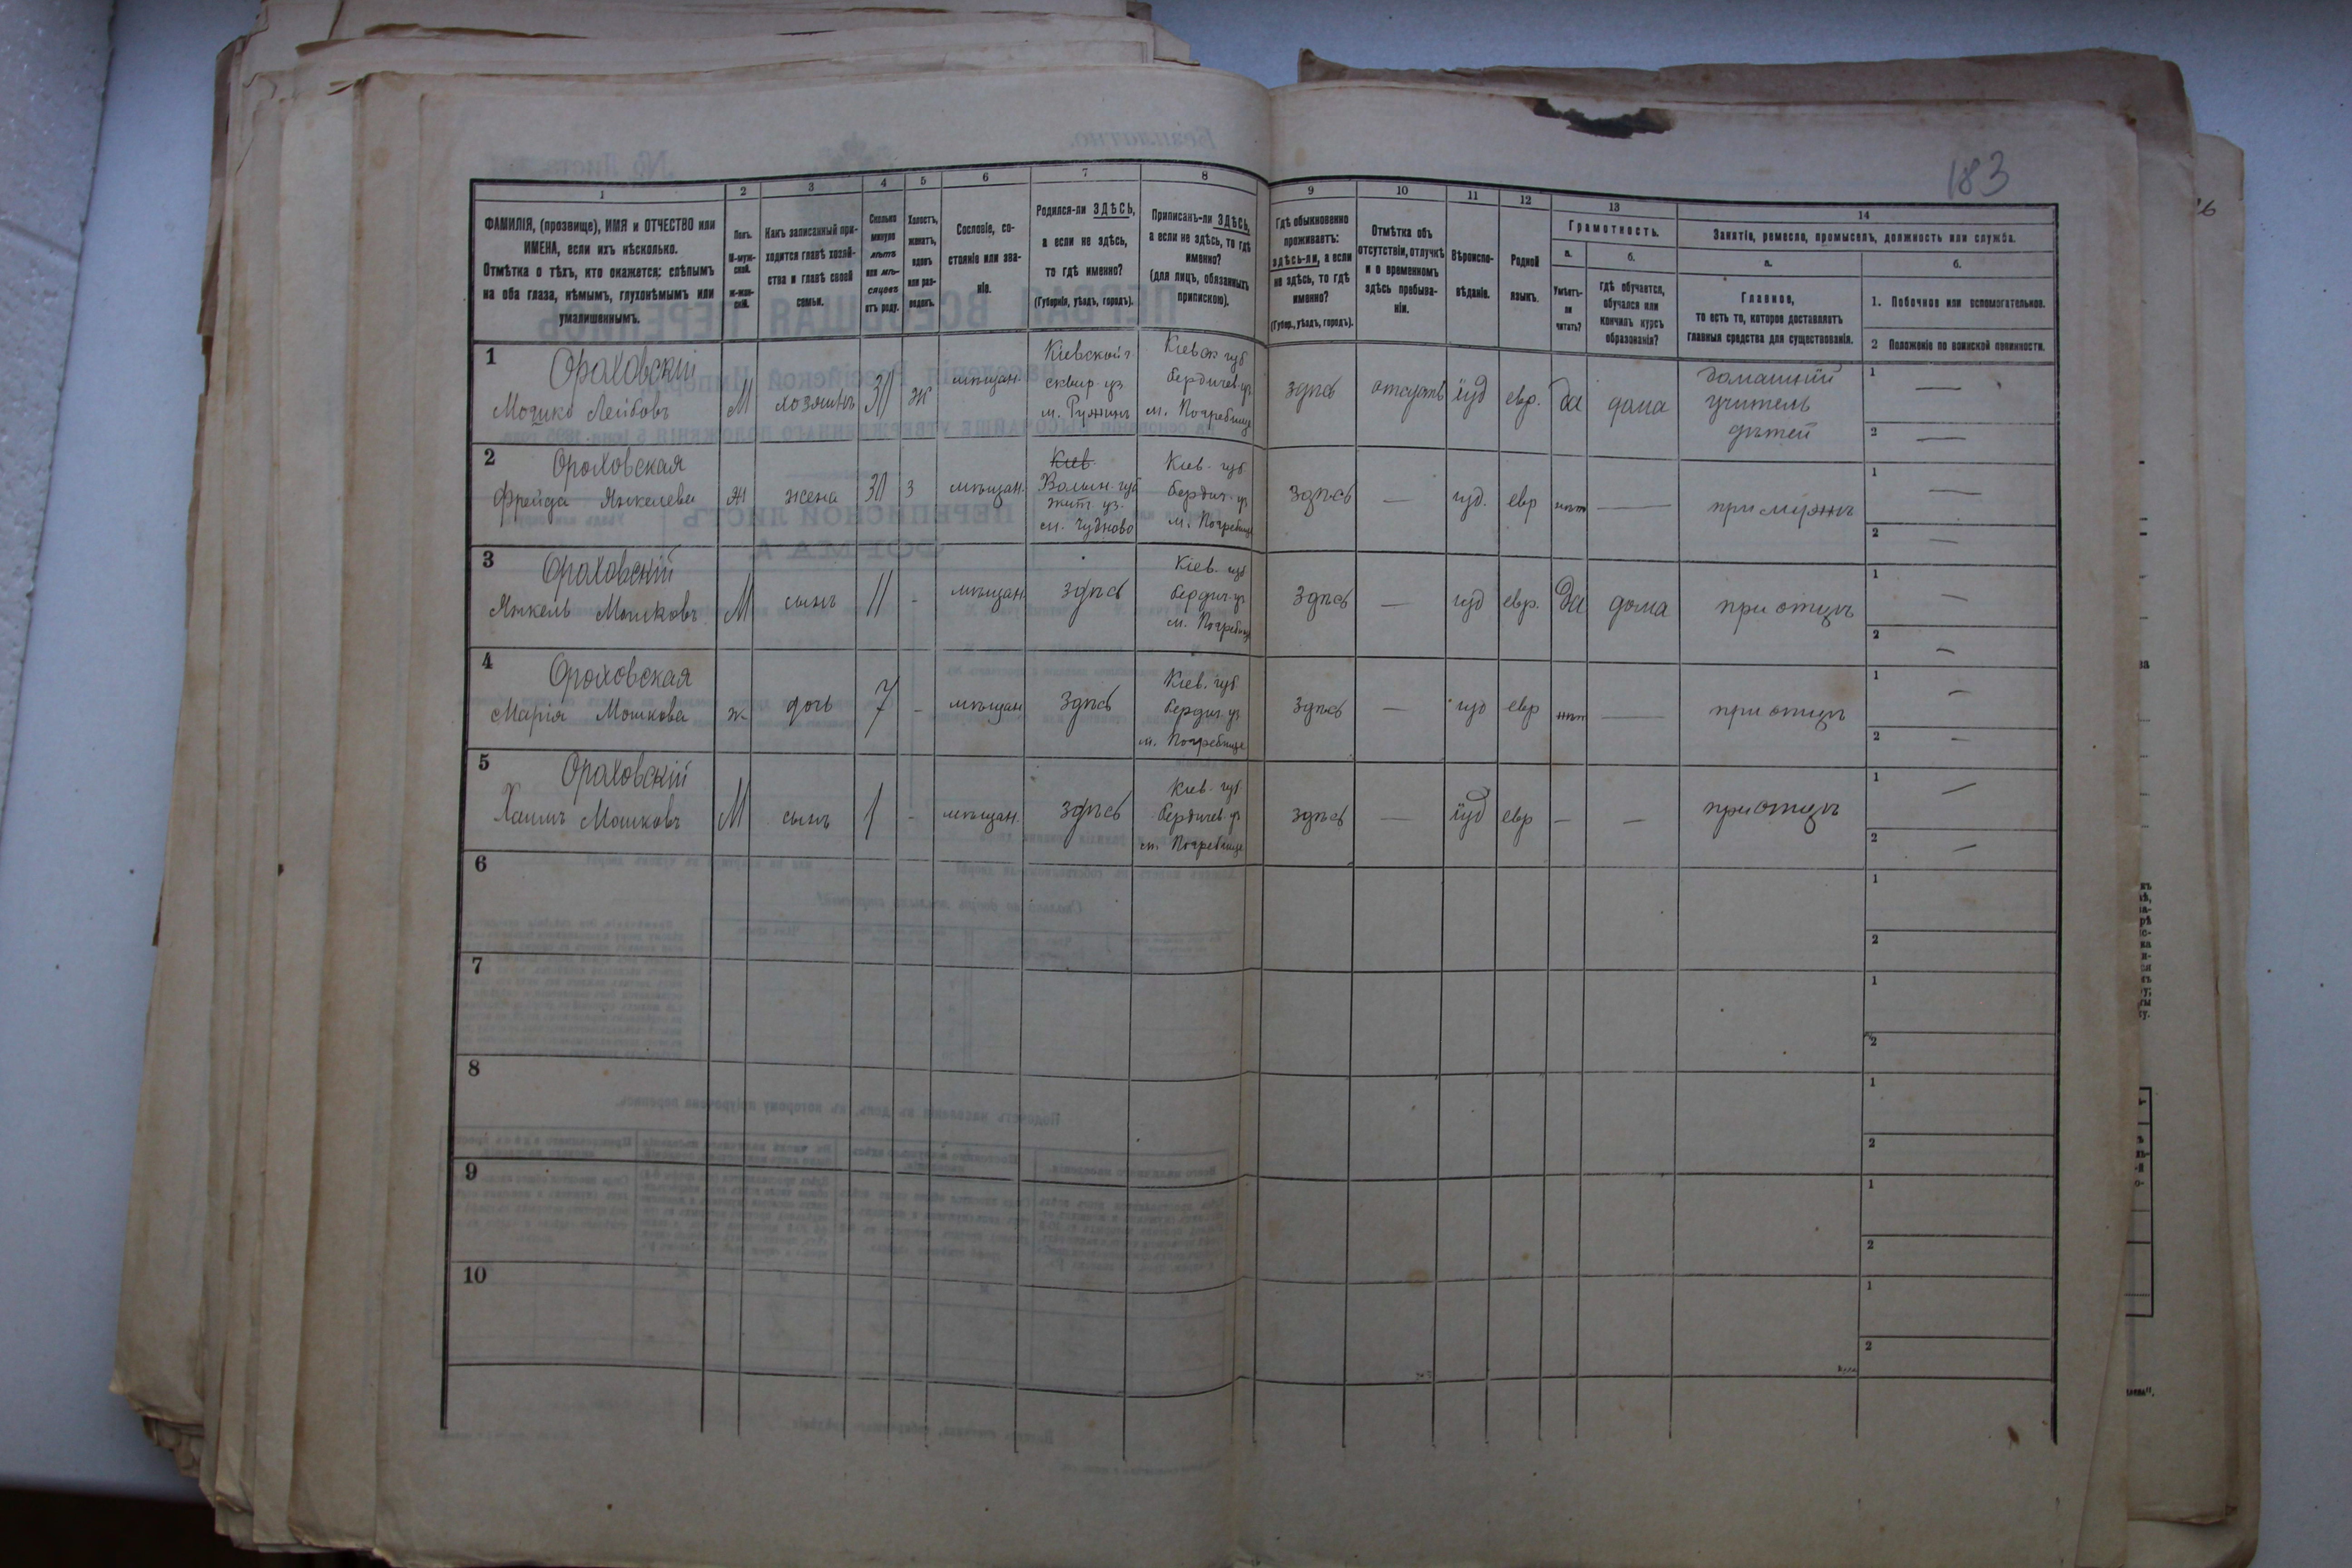 183
1
2
3
4
5
6
7
8
9
10
11
12
13
14
ФАМИЛІЯ, (прозвище), ИМЯ и ОТЧЕСТВО или
ИМЕНА, если ихъ нѣсколько.
Отмѣтка о тѣхъ, кто окажется: слѣпымъ
на оба глаза, нѣмымъ, глухонѣмымъ или
умалишеннымъ.
Полъ.
М-муж-
ской.
Ж-жен-
скій.
Какъ записанный при-
ходится главѣ хозяй-
ства и главѣ своей
семьи.
Сколько
минуло
лѣтъ
или мѣ-
сяцевъ
отъ роду.
Холостъ,
женатъ,
вдовъ
или раз-
веденъ.
Сословіе, со-
стояніе или зва-
ніе.
Родился-ли ЗДѢСЬ,
а если не здѣсь,
то гдѣ именно?
(Губернія, уѣздъ, городъ).
Приписанъ-ли ЗДѢСЬ,
а если не здѣсь, то гдѣ
именно?
(для лицъ, обязанныхъ
припискою).
Гдѣ обыкновенно
проживаетъ:
здѣсь-ли, а если
не здѣсь, то гдѣ
именно?
(Губер., уѣздъ, городъ).
Отмѣтка объ
отсутствіи, отлучкѣ
и о временномъ
здѣсь пребыва-
ніи.
Вѣроиспо-
вѣданіе.
Родной
языкъ.
Грамотность.
а.
Умѣетъ-
ли
читать?
б.
гдѣ обучается,
обучался или
кончилъ курсъ
образованія?
Занятіе, ремесло, промыселъ, должность или служба.
а.
Главное,
то есть то, которое доставляетъ
главныя средства для существованія.
б.
1. Побочное или вспомогательное.
2 Положеніе по воинской повинности.
1
Ораховскій
Мошко Лейбовъ
М
хозяинъ
30
ж
мѣщан.
Кіевской г.
сквир. уз
м. Ружинъ
Кіевск губ
бердичев. уз
м. Погребище
здѣсь
отсутств
іуд
евр.
да
дома
домашній
учитель
дѣтей
1 —
2 —
2
Ороховская
Фрейда Янкелева
ж
жена
30
з
мѣщан.
Кіев.
Волын. губ
жит. уз.
м. Чудново
Кіев. губ
бердич. уз
м. Погребище
здѣсь
—
іуд.
евр
нѣт
—
при мужѣ
1 —
2 —
3
Ораховскій
Янкель Мошковъ
М
сынъ
11
-
мѣщан.
здѣсь
Кіев. губ
бердич. уз
м. Погребище
здѣсь
—
іуд
евр.
да
дома
при отцѣ
1 —
2 —
4
Ороховская
Марія Мошкова
ж
дочь
7
-
мѣщан
здѣсь
Кіев. губ.
бердич. уз
м. Погребище
здѣсь
—
іуд
евр
нѣт
—
при отцѣ
1 —
2 —
5
Ораховскій
Хаимъ Мошковъ
М
сынъ
1
-
мѣщан.
здѣсь
Кіев. губ
бердичев. уз
м. Погребище
здѣсь
—
іуд
евр
—
—
при отцѣ
1 —
2 —
6
1
2
7
1
2
8
1
2
9
1
2
10
1
2